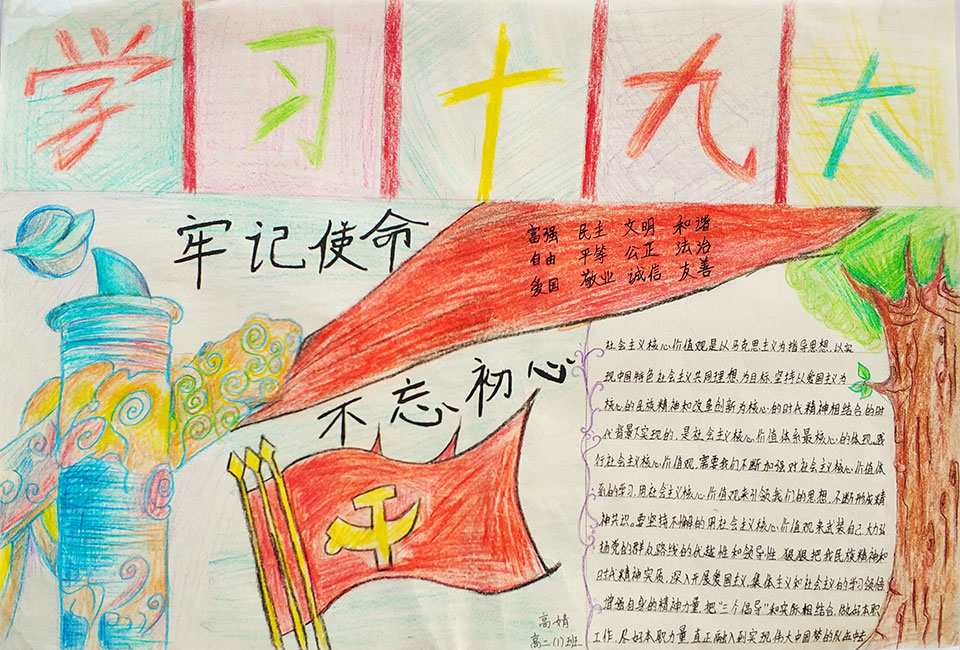 学习十九大
牢记使命
富强 民主 文明 和谐
自由 平等 公正 法治
爱国 敬业 诚信 友善
不忘初心
社会主义核心价值观是以马克思主义为指导思想,以实
现中国特色社会主义共同理想为目标,坚持以爱国主义为
核心的民族精神和改革创新为核心的时代精神相结合的时
代背景下实现的,是社会主义核心价值体系最核心的体现。践
行社会主义核心价值观,需要我们不断加强对社会主义核心价值体
系的学习,用社会主义核心价值观来引领我们的思想,不断形成精
神共识。要坚持不懈的用社会主义核心价值观来武装自己,大力弘
扬党的群众路线的优越性和领导性,狠狠把我民族精神和
时代精神实质,深入开展爱国主义,集体主义和社会主义的学习
增强自身的精神力量,把“三个倡导”和实际相结合,做好本职
工作,尽好本职力量,真正融入到实现伟大中国梦的队伍中去
高婧
高二(1)班